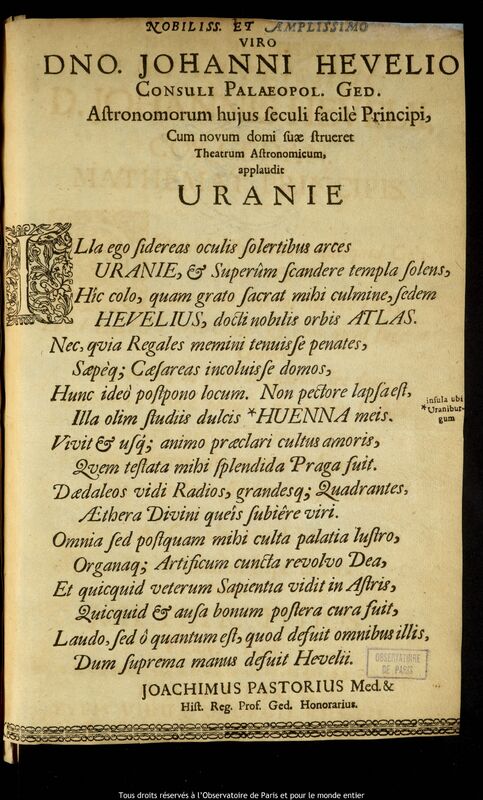 NOBILISS. ET AMPLISSIMO
VIRO
DNO. JOHANNI HEVELIO
CONSULI PALAEOPOL. GED.
Aſtronomorum hujus ſeculi facilè Principi,
Cum novum domi ſuæ ſtrueret
Theatrum Aſtronomicum,
applaudit
URANIE
ILla ego ſidereas oculis ſolertibus arces
URANIE, & Superûm ſcandere templa ſolens,
Hîc colo, quam grato ſacrat mihi culmine, ſedem
HEVELIUS, docti nobilis orbis ATLAS.
Nec, qvia Regales memini tenuiſſe penates,
Sæpèq; Cæſareas incoluiſſe domos,
Hunc ideò poſtpono locum. Non pectore lapſa eſt,
Illa olim ſtudiis dulcis *HUENNA meis.
inſula ubi
*Uranibur-
gum
Vivit & uſq; animo præclari cultus amoris,
Qvem teſtata mihi ſplendida Praga fuit.
Dædaleos vidi Radios, grandesq; Quadrantes,
Æthera Divini queîs ſubiêre viri.
Omnia ſed poſtquam mihi culta palatia luſtro,
Organaq; Artificum cuncta revolvo Dea,
Et quicquid veterum Sapientia vidit in Aſtris,
Quicquid & auſa bonum poſtera cura fuit,
Laudo, ſed ô quantum eſt, quod defuit omnibus illis,
Dum ſuprema manus defuit Hevelii.
OBSERVATOIRE
DE PARIS
JOACHIMUS PASTORIUS Med. &
Hiſt. Reg. Prof. Ged. Honorarius.
Tous droits réservés à l'Observatoire de Paris et pour le monde entier